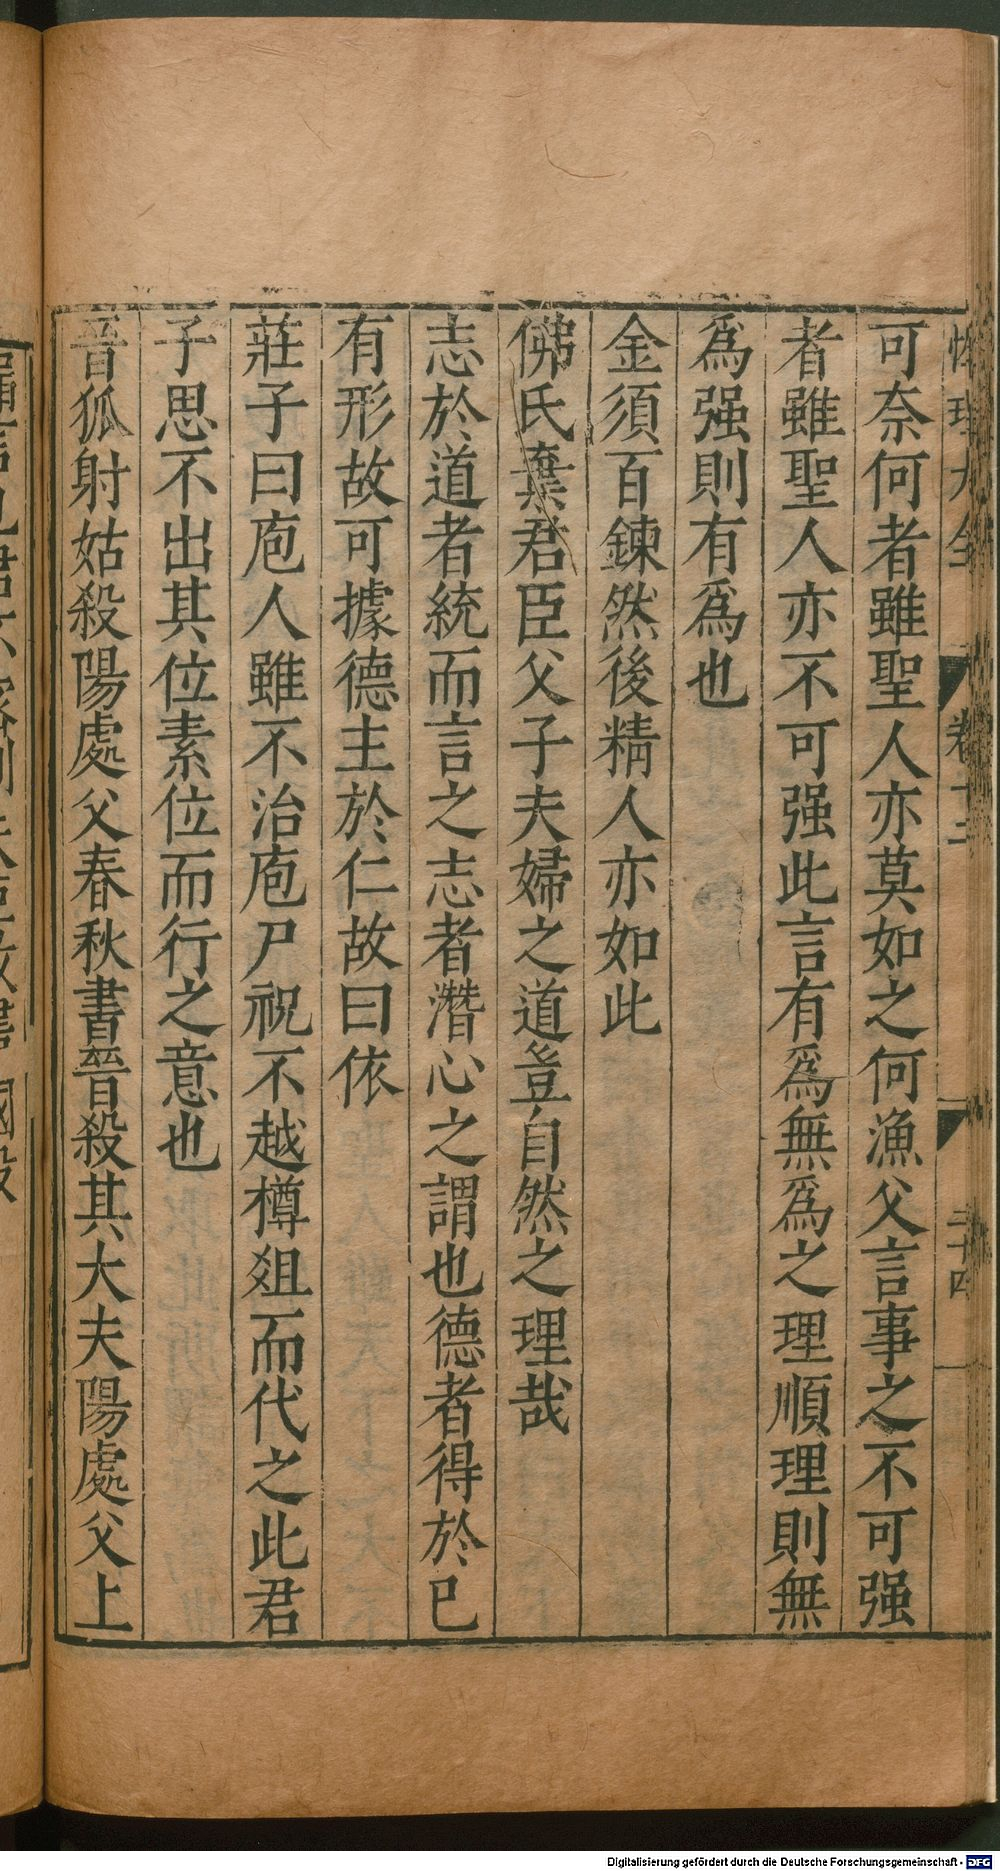 性理大全 卷十三 三十四
可奈何者雖聖人亦莫如之何漁父言事之不可强
者雖聖人亦不可强此言有爲無爲之理順理則無
爲强則有爲也
金須百鍊然後精人亦如此
佛氏棄君臣父子夫婦之道豈自然之理哉
志於道者統而言之志者潛心之謂也德者得於已
有形故可據德主於仁故曰依
莊子曰庖人雖不治庖尸祝不越樽俎而代之此君
子思不出其位素位而行之意也
晉狐射姑殺陽處父春秋書晉殺其大夫陽處父上
Digitalisierung gefördert durch die Deutsche Forschungsgemeinschaft - DFG